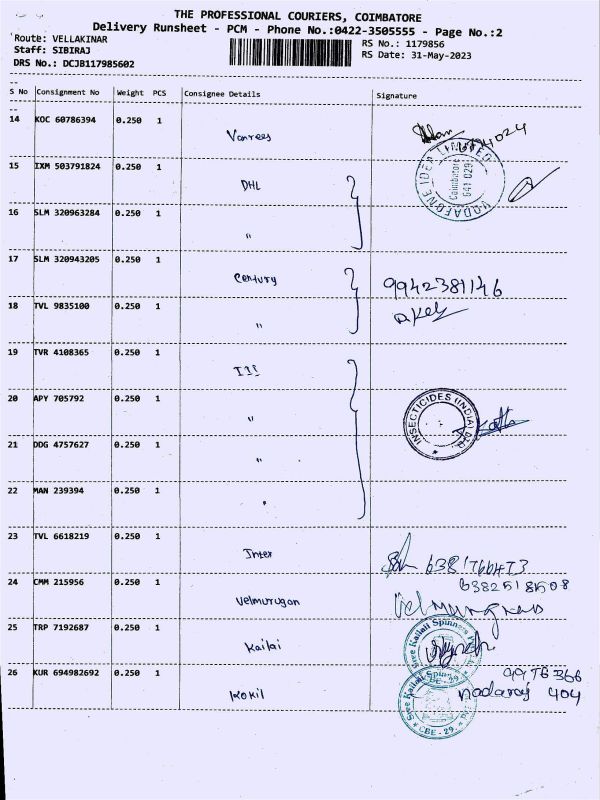 THE PROFESSIONAL COURIERS, COIMBATORE
Delivery Runsheet - PCM - Phone No.:0422-3505555 - Page No.:2
Route: VELLAKINAR
RS No.: 1179856
Staff: SIBIRAJ
RS Date: 31-May-2023
DRS No.: DCJB117985602
S No Consignment No Weight PCS Consignee Details Signature
14 KOC 60786394 0.250 1
15 IXM 503791824 0.250 1 DHL
VODAFONE IDEA LIMITED
Coimbatore
641 029
16 SLM 320963284 0.250 1 "
17 SLM 320943205 0.250 1 Century 9942381146
18 TVL 9835100 0.250 1 "
19 TVR 4108365 0.250 1
20 APY 705792 0.250 1 "
INSECTICIDES (INDIA) LTD.
21 DDG 4757627 0.250 1 "
22 MAN 239394 0.250 1 "
23 TVL 6618219 0.250 1 Inter
24 CMM 215956 0.250 1 Velmurugan 6382518508
Velmurugan
25 TRP 7192687 0.250 1 Kailai
Shree Kailali Spinners
26 KUR 694982692 0.250 1 Kokil 9976366
nadaraj 404
Shree Kailali Spinners
CBE - 29.